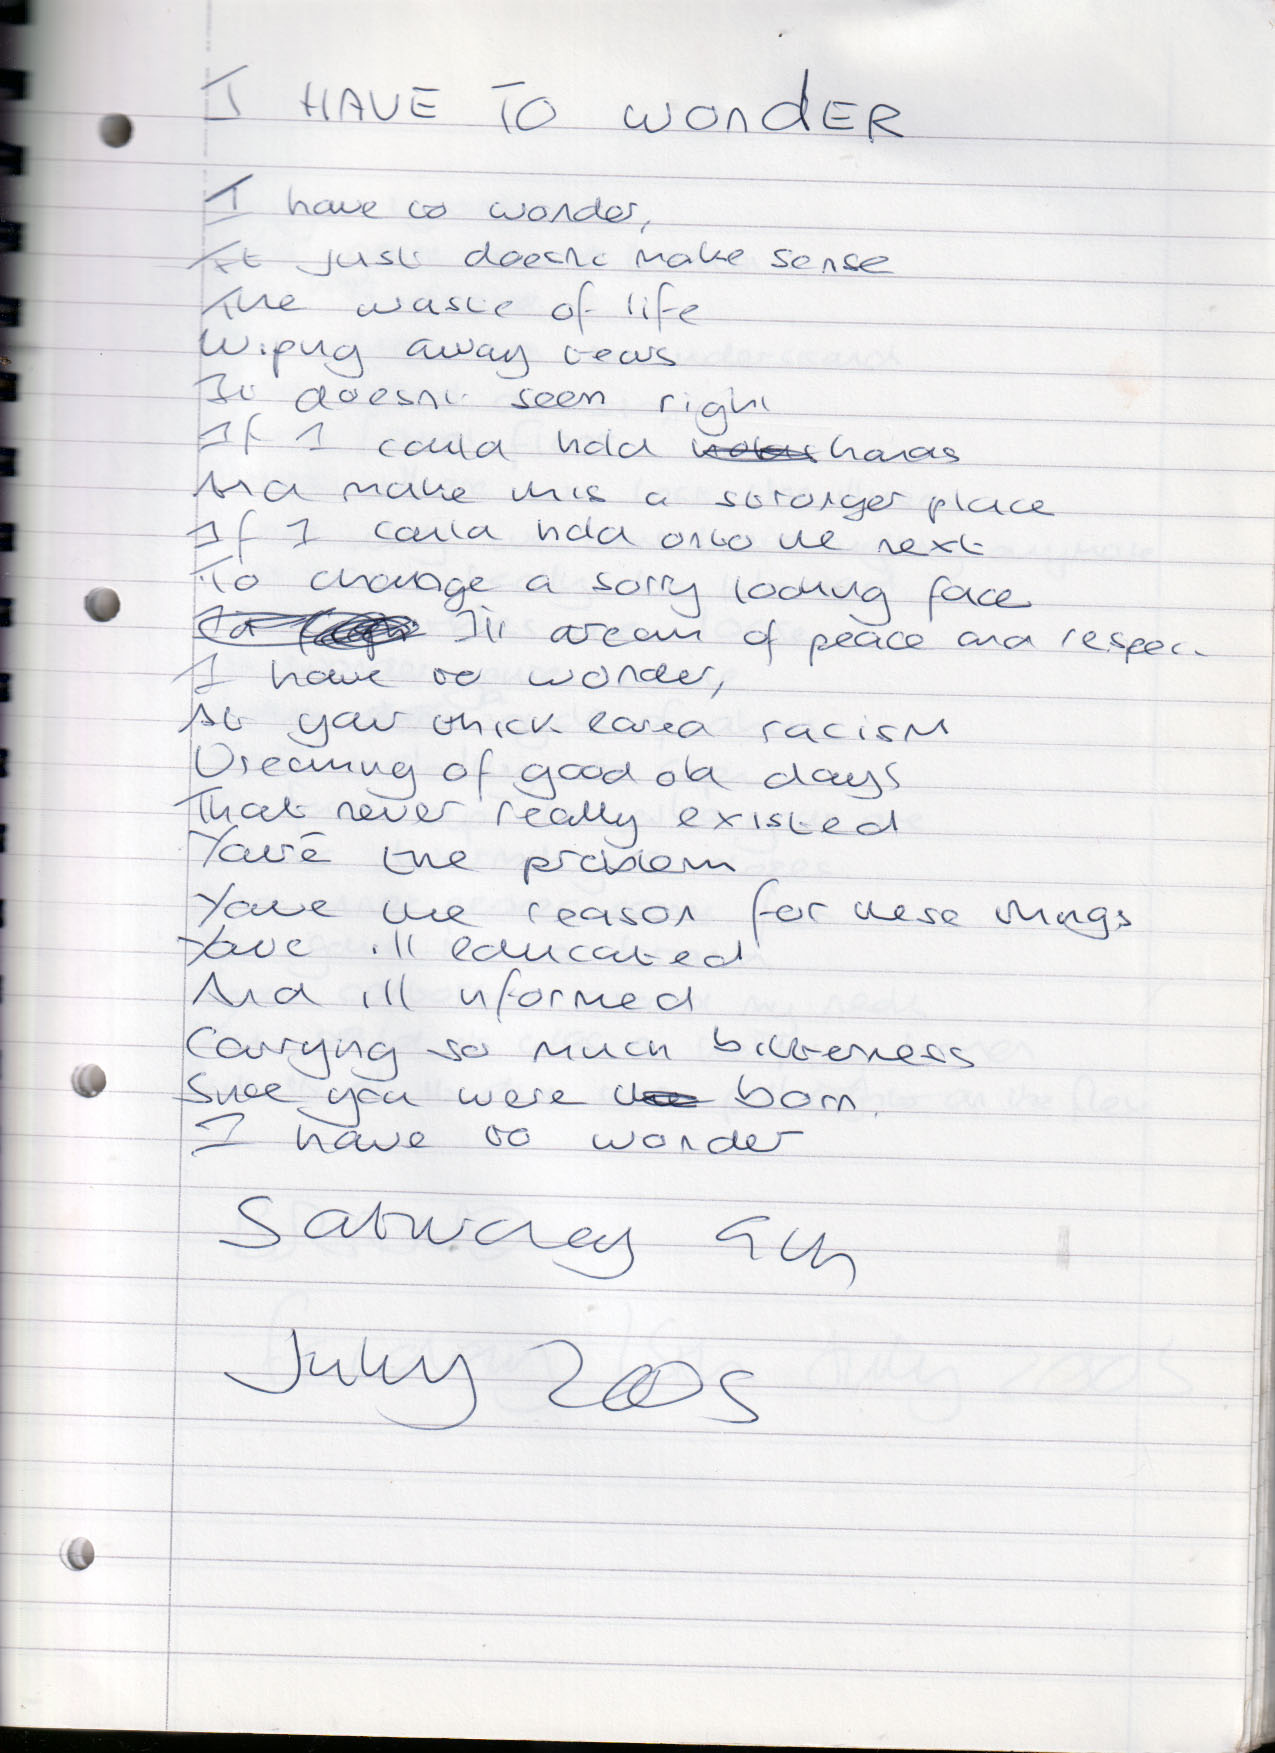 I HAVE TO WONDER
I have to wonder,
It just doesnt make sense
The waste of life
Wiping away tears
It doesnt seem right
If I could hold hands
And make this a stronger place
If I could hold onto the next
To change a sorry looking face
I'll dream of peace and respect
I have to wonder,
At your thick eared racism
Dreaming of good old days
That never really existed
You're the problem
Youre the reason for these things
Youre ill educated
And ill informed
Carrying so much bitterness
Since you were born.
I have to wonder
Saturday 9th
July 2005